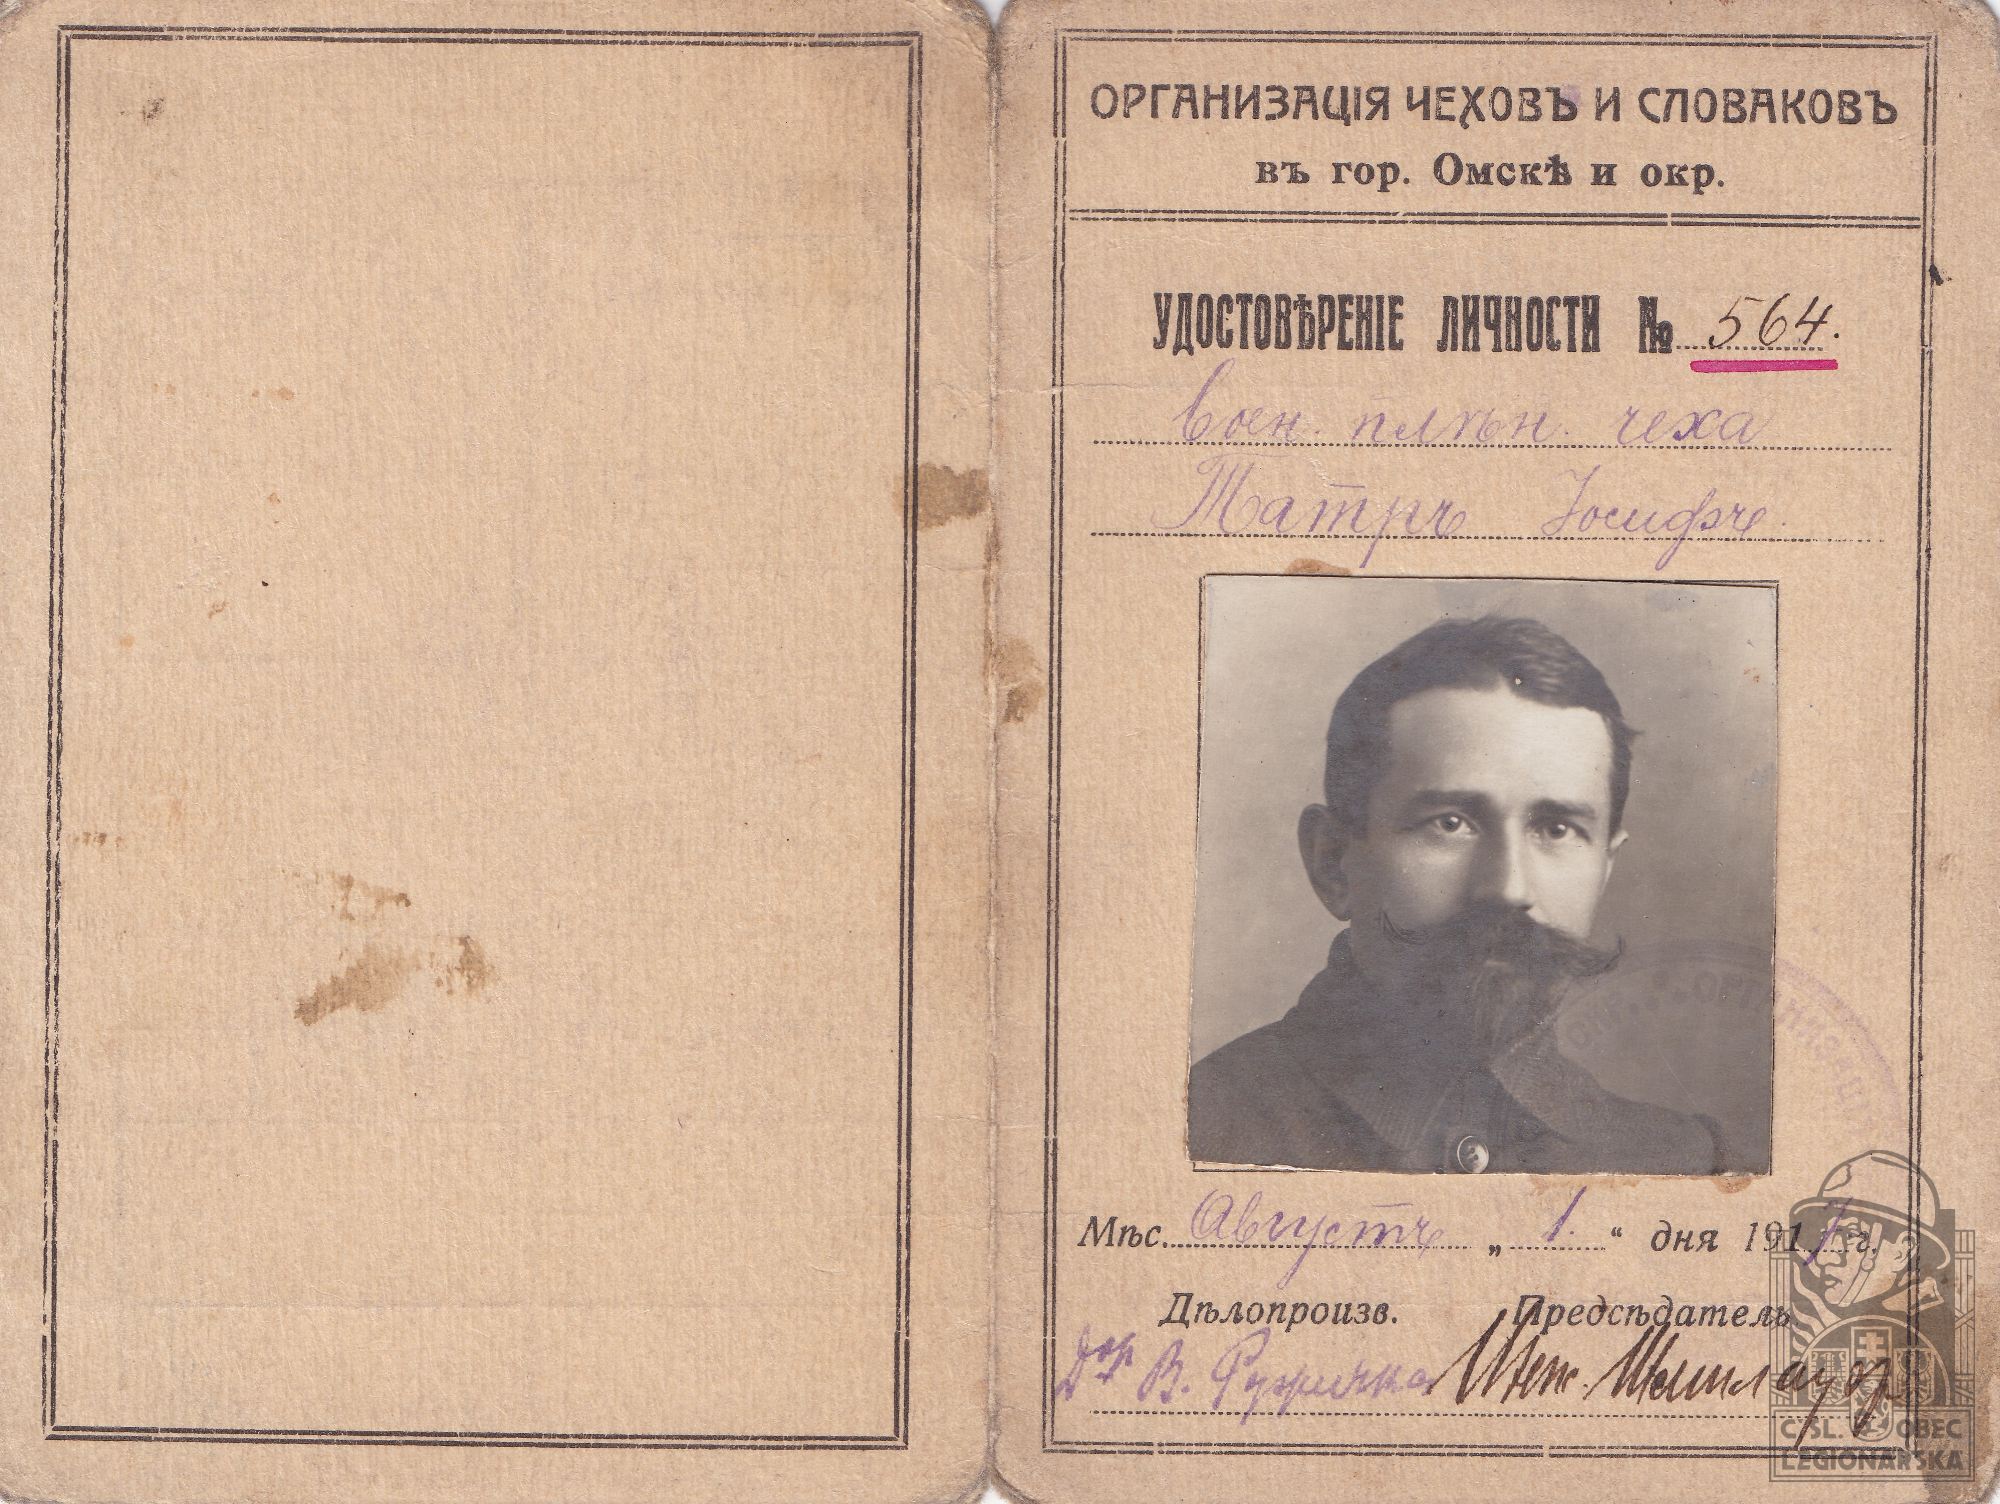 ОРГАНИЗАЦІЯ ЧЕХОВЪ И СЛОВАКОВЪ
въ гор. Омскѣ и окр.
УДОСТОВѢРЕНІЕ ЛИЧНОСТИ № 564.
воен. плѣн. чеха
Татръ Іосифъ.
ОРГАНИЗАЦІЯ
Мѣс. Августъ „ 1. “ дня 1917 г.
Дѣлопроизв. Предсѣдатель.
Д-ръ В. Ружичка Инж. Шмилауэръ
ČSL. OBEC
LEGIONÁŘSKÁ